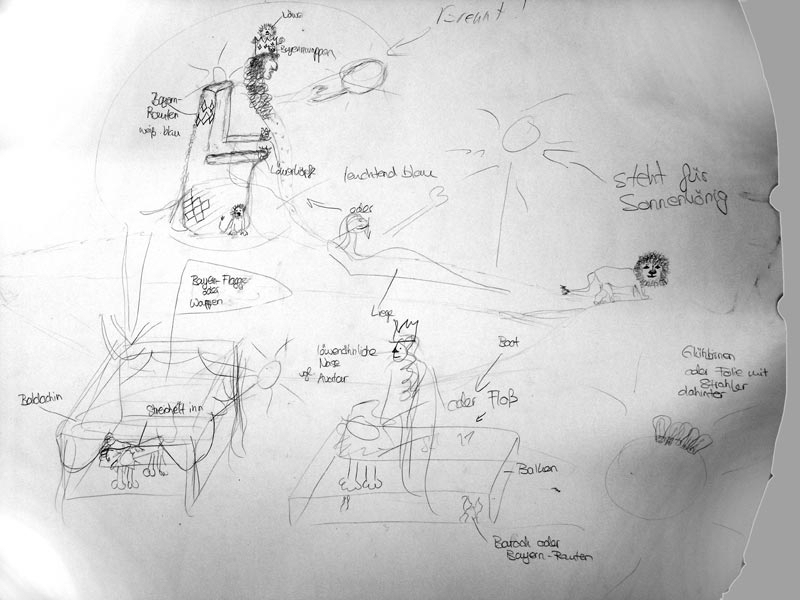 Löwe
Bayernwappen
brennt!
Bayern-
Rauten
weiß-blau
Löwenköpfe
leuchtend blau
oder
steht für
Sonnenkönig
Liege
Bayern-Flagge
oder
Wappen
löwenähnliche
Nase
vgl. Avatar
Boot
oder Floß
Glühbirnen
oder Folie mit
Strahler
dahinter
Baldachin
streichelt ihn
Balken
Barock oder
Bayern-Rauten